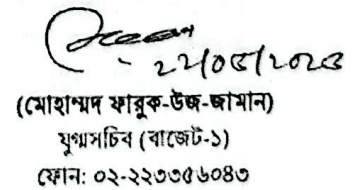 ২২/০৫/২০২৫
(মোহাম্মদ ফারুক-উজ-জামান)
যুগ্মসচিব (বাজেট-১)
ফোন: ০২-২২৩৩৫৬০৪৩